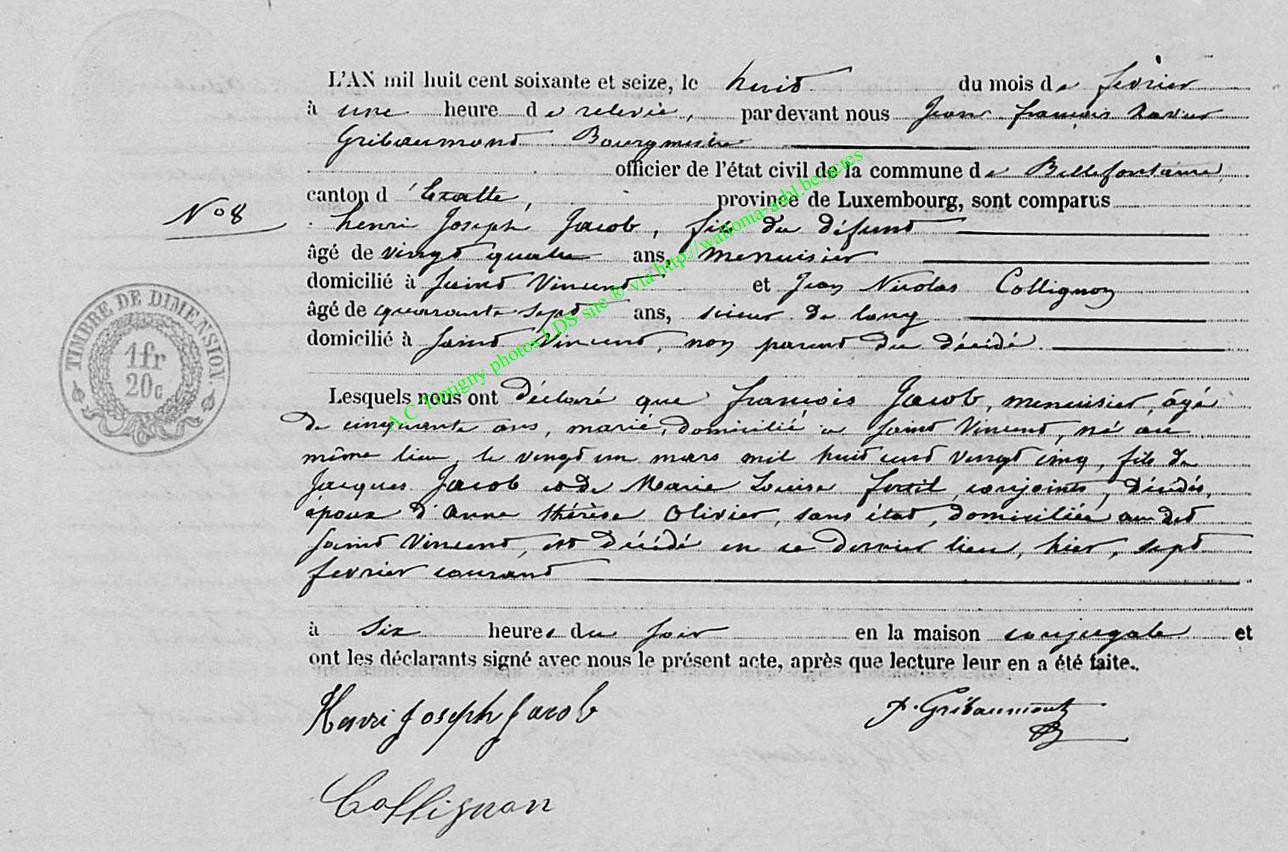 L'AN mil huit cent soixante et seize, le huit du mois de février
à une heure de relevée, pardevant nous Jean françois Xavier
Gribaumont Bourgmestre
officier de l'état civil de la commune de Bellefontaine,
canton d'Etalle, province de Luxembourg, sont comparus
N° 8
henri Joseph Jacob, fils du défunt
âgé de vingt quatre ans, menuisier
domicilié à Saint Vincent et Jean Nicolas Collignon
âgé de quarante sept ans, scieur de long
domicilié à Saint Vincent, non parent du décédé
TIMBRE DE DIMENSION.
1 fr
20 c
Lesquels nous ont déclaré que françois Jacob, menuisier, âgé
de cinquante ans, marié, domicilié a Saint Vincent, né au
même lieu, le vingt un mars mil huit cent vingt cinq, fils de
Jacques Jacob et de Marie Louise fortil, conjoints, décédés,
époux d'Anne thérèse Olivier, sans état, domiciliée au dit
Saint Vincent, est décédé en ce dernier lieu, hier, sept
fevrier courant
à six heures du soir en la maison conjugale et
ont les déclarants signé avec nous le présent acte, après que lecture leur en a été faite.
Henri Joseph Jacob
Gribaumont
Collignon
A C Tontigny photos LDS site © via http://wallonia-asbl.be/actes